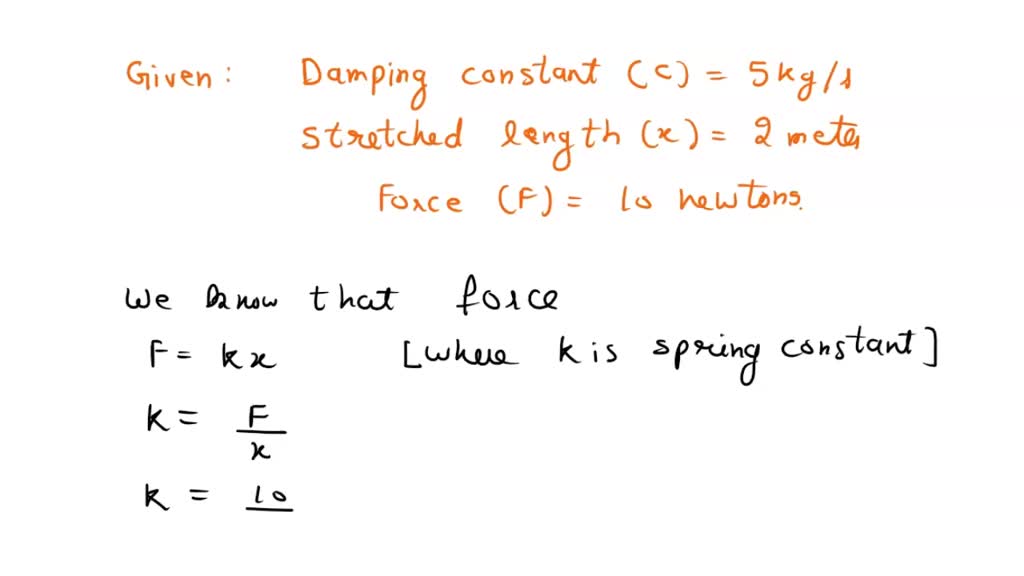 Given: Damping constant (c) = 5kg/s
stretched length (x) = 2 meter
Force (F) = 10 newtons.
We know that force
F = kx [where k is spring constant]
k = F/x
k = 10